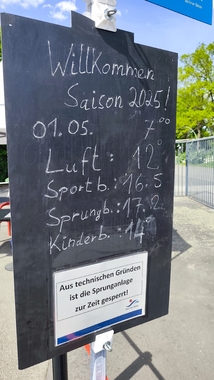 Willkommen
Saison 2025!
01.05. 7⁰⁰
Luft: 12°
Sportb.: 16.5
Sprungb.: 17.2
Kinderb.: 14°
Aus technischen Gründen
ist die Sprunganlage
zur Zeit gesperrt!